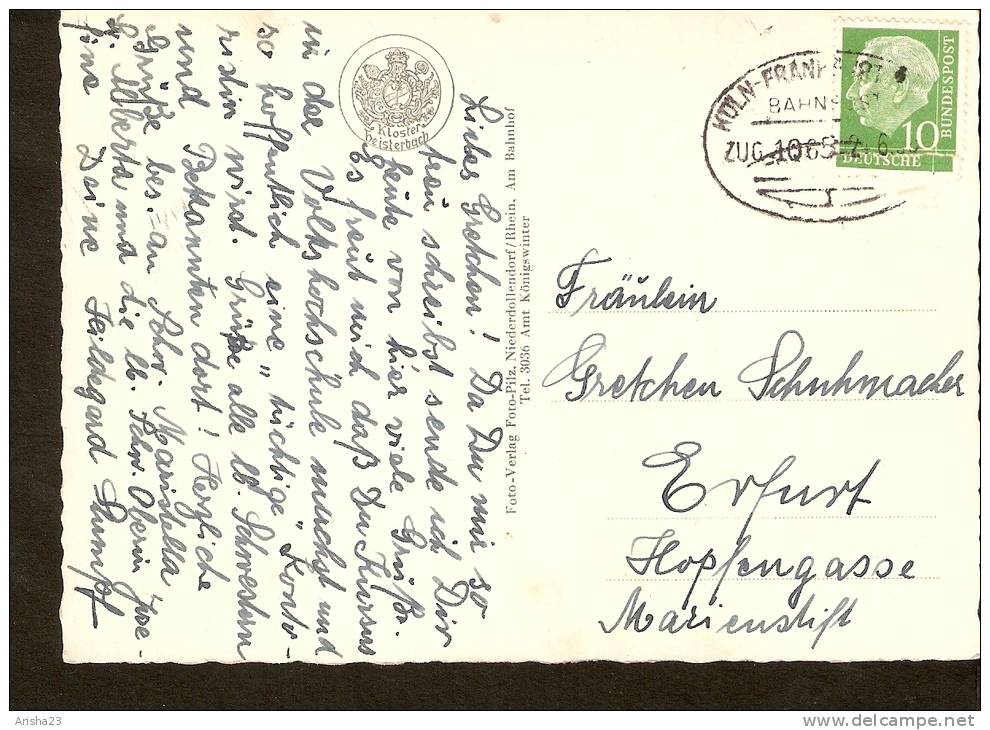 Liebes Gretchen! Da Du mir so
treu schreibst sende ich Dir
heute von hier viele Grüße.
Es freut mich daß Du Kursus
in der Volkshochschule machst und
so hoffentlich eine "tüchtige" Konto-
ristin wird. Grüße alle lb. Schwestern
und Bekannten dort! Herzliche
Grüße bes. an Schw. Maristella
Alberta und die lb. Schw. Oberin
Deine Hildegard Stumpf
Kloster
Heisterbach
Foto-Verlag Foto-Pilz, Niederdollendorf/Rhein, Am Bahnhof
Tel. 3036 Amt Königswinter
KÖLN-FRANKFURT
BAHNPOST
ZUG 1065
10
DEUTSCHE
BUNDESPOST
Fräulein
Gretchen Schuhmacher
Erfurt
Hopfengasse
Marienstift
Arisha23
www.delcampe.net